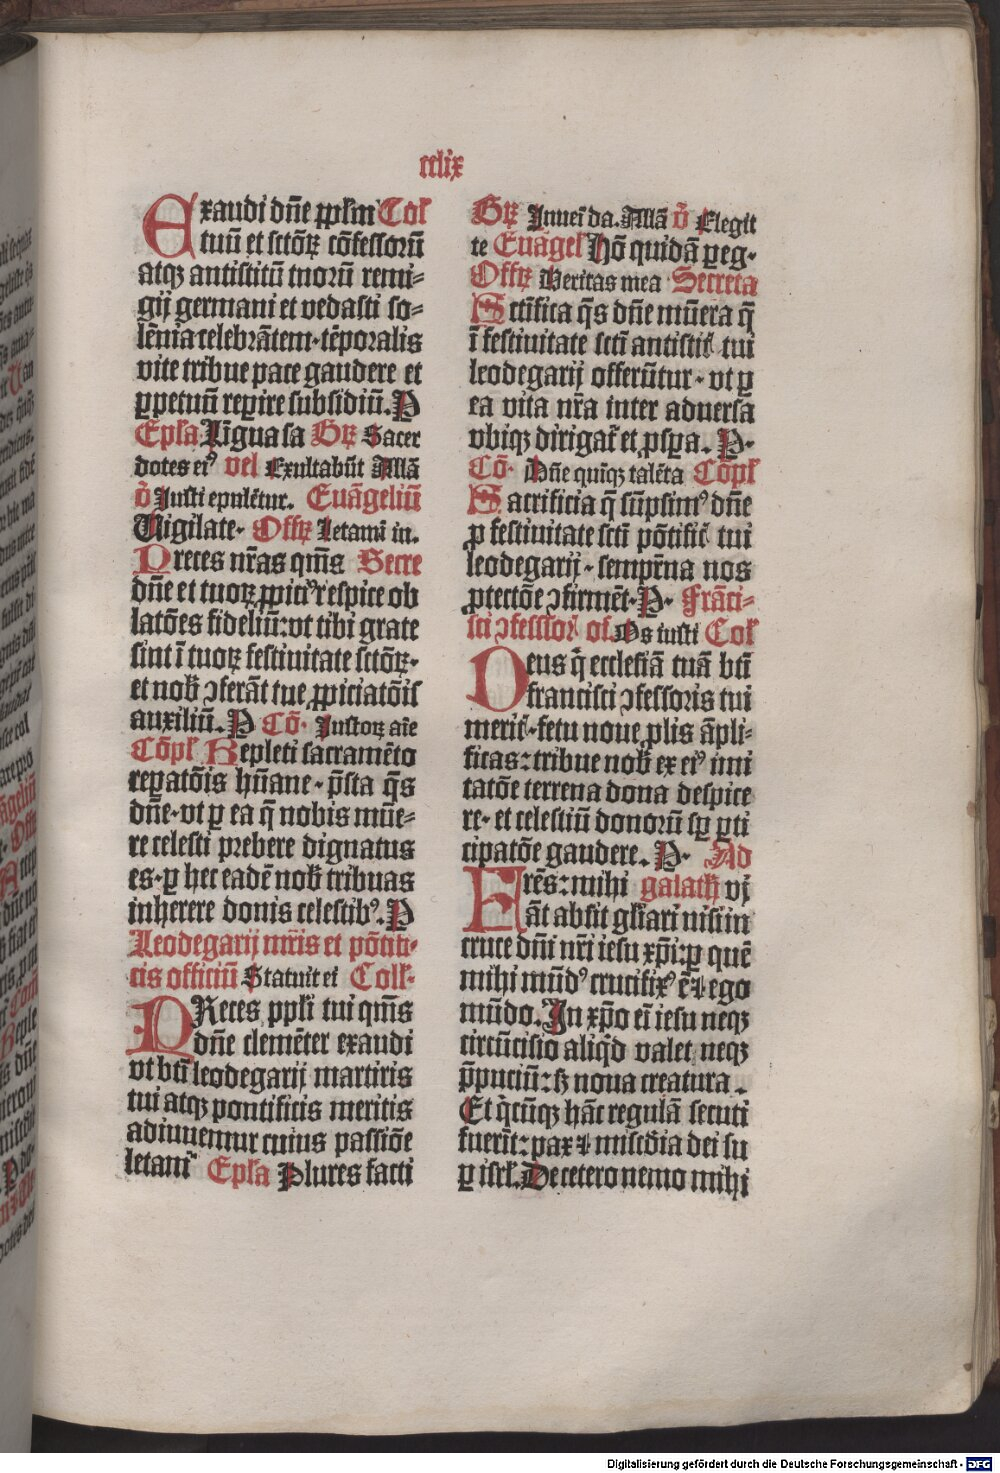 cclix
Exaudi dn̄e pp̄lm Col̄
tuū et sctōꝝ cōfessorū
atqꝫ antistitū tuorū remi-
gij germani et vedasti so-
lēnia celebrātem·tēporalis
vite tribue pace gaudere et
ꝑpetuū reꝑire subsidiū. P
Epl̄a Līgua sa Gꝝ Sacer
dotes eiꝰ vel Exultabūt Allā
v̄ Justi epulētur. Euāgeliū
Vigilate· Offꝝ Letami in.
Preces nr̄as qm̄s Secre
dn̄e et tuoꝝ ꝓpiciꝰ respice ob
latōes fideliū:vt tibi grate
sint ī tuoꝝ festiuitate sctōꝝ·
et nob̄ ꝯferāt tue ꝓpiciatōis
auxiliū. P Cō· Justoꝝ aīe
Cōpl̄ Repleti sacramēto
reꝑatōis hūane·p̄sta q̄s
dn̄e·vt ꝑ ea q̄ nobis mūe-
re celesti prebere dignatus
es·ꝑ hec eadē nob̄ tribuas
inherere donis celestibꝰ. P
Leodegarij mr̄is et pōtifi-
cis officiū Statuit ei Coll̄·
PReces ppl̄i tui qm̄s
dn̄e clemēter exaudi
vt btī leodegarij martiris
tui atqꝫ pontificis meritis
adiuuemur cuius passiōe
letamꝰ Epl̄a Plures facti
Gꝝ Jnueī da. Allā v̄ Elegit
te Euāgel̄ Hō quidā ꝑeg·
Offꝝ Veritas mea Secreta
Sctīfica q̄s dn̄e mūera q̄
ī festiuitate sctī antistit̄ tui
leodegarij offerūtur·vt ꝑ
ea vita nr̄a inter aduersa
vbiqꝫ dirigat̄ et ꝓspa. P·
Cō· Dn̄e quīqꝫ talēta Cōpl̄
Sacrificia q̄ sūpsimꝰ dn̄e
ꝓ festiuitate sctī pōtific̄ tui
leodegarij·sempr̄na nos
ꝓtectōe ꝯfirmēt·P· Frāci-
sci ꝯfessor̄ of. Os iusti Col̄
Deus q̄ ecclesiā tuā btī
francisci ꝯfessoris tui
merit̄·fetu noue ꝓlis āpli-
ficas:tribue nob̄ ex eiꝰ imi
tatōe terrena dona despice
re·et celestiū donorū sꝑ ꝑti
cipatōe gaudere. P· Ad
Frēs:mihi galath̄ vj
āt absit gl̄iari nisi in
cruce dn̄i nr̄i iesu xp̄i:ꝑ quē
mihi mūdꝰ crucifixꝰ ē⁊ego
mūdo. In xp̄o eī iesu neqꝫ
circūcisio aliq̇d valet neqꝫ
p̄puciū:sꝫ noua creatura.
Et q̇cūqꝫ hāc regulā secuti
fuerīt:pax⁊misedia dei su
ꝑ isrl̄. De cetero nemo mihi
Digitalisierung gefördert durch die Deutsche Forschungsgemeinschaft - DFG